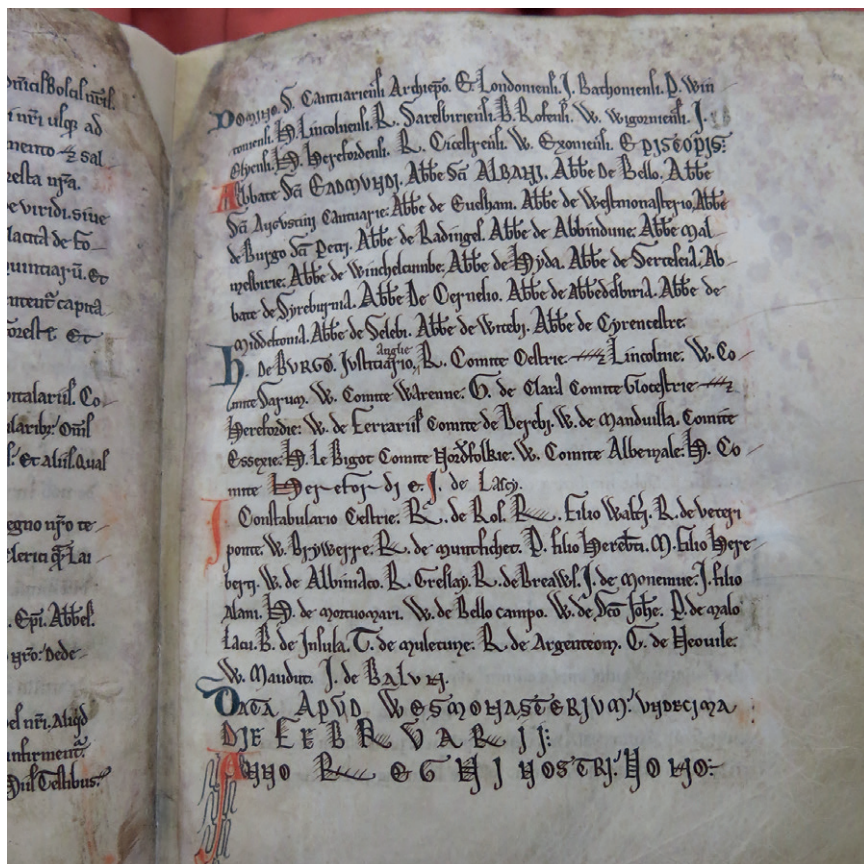 omicil Bolcil nr̄il.
i nr̄i usq; ad
mento ⁊ sal
resta nr̄a.
e viridi. siue
lacita de fo
quintiarū. Et
intent̄ capita
oreste. Et
ntalariis. Co
lariby: Om̄s
Et aliis. Qual
egno nr̄o te
lerici Lai
. Ep̄i. Abbes.
nr̄o: Dede
el nr̄i. Aliqd
nfirment̄.
Testibus.
DOMINO. S. Cantuariensi Archiep̄o. E. Londoniensi. J. Bathoniensi. P. Win
toniensi. H. Lincolniensi. R. Saresbiriensi. B. Rofensi. W. Wigorniensi. J.
Elyensi. H. Herefordensi. R. Cicestrensi. W. Exoniensi. EPISCOPIS:
Abbate Sc̄i EADMUNDI. Abb̄e Sc̄i ALBANI. Abb̄e De Bello. Abb̄e
Sc̄i Augustini Cantuarie. Abb̄e de Euesham. Abb̄e de Westmonasterio. Abb̄e
de Burgo Sc̄i Petri. Abb̄e de Radinges. Abb̄e de Abbindune. Abb̄e Mal
mesbirie. Abb̄e de Winchelcumbe. Abb̄e de Hyda. Abb̄e de Certeseia. Ab
bate de Syreburnia. Abb̄e De Cernelio. Abb̄e de Abbedesbiria. Abb̄e de
Middeltonia. Abb̄e de Selebi. Abb̄e de Witebi. Abb̄e de Cyrencestre.
H. DE BURGO. Justiciario Anglie, R. Comite Cestrie ⁊ Lincolnie. W. Co
mite Sarum. W. Comite Warenne. G. de Clara Comite Glocestrie ⁊
Herefordie. W. de Ferrariis Comite de Dereby. W. de Manduilla. Comite
Essexie. H. Le Bigot Comite Nordfolkie. W. Comite Albemale. H. Co
mite Herefordie. J. de Lascy.
Constabulario Cestrie. R. de Ros. R. Filio Walt̄i. R. de Veteri
ponte. W. Brywerre. R. de Muntfichet. P. filio Herebt̄i. M. filio Here
berti. W. de Albiniaco. R. Greslay. R. de Breaws. J. de Monemue. J. filio
Alani. H. de Mortuomari. W. de Bello campo. W. de Sc̄o Joh̄e. P. de Malo
Lacu. B. de Insula. T. de Muletune. R. de Argenteom. G. de Neouile.
W. Mauduit. J. de BALUN.
DATA APUD WESMONASTERIUM: UNDECIMA
DIE FEBRUARII:
ANNO REGNI NOSTRI: NONO: